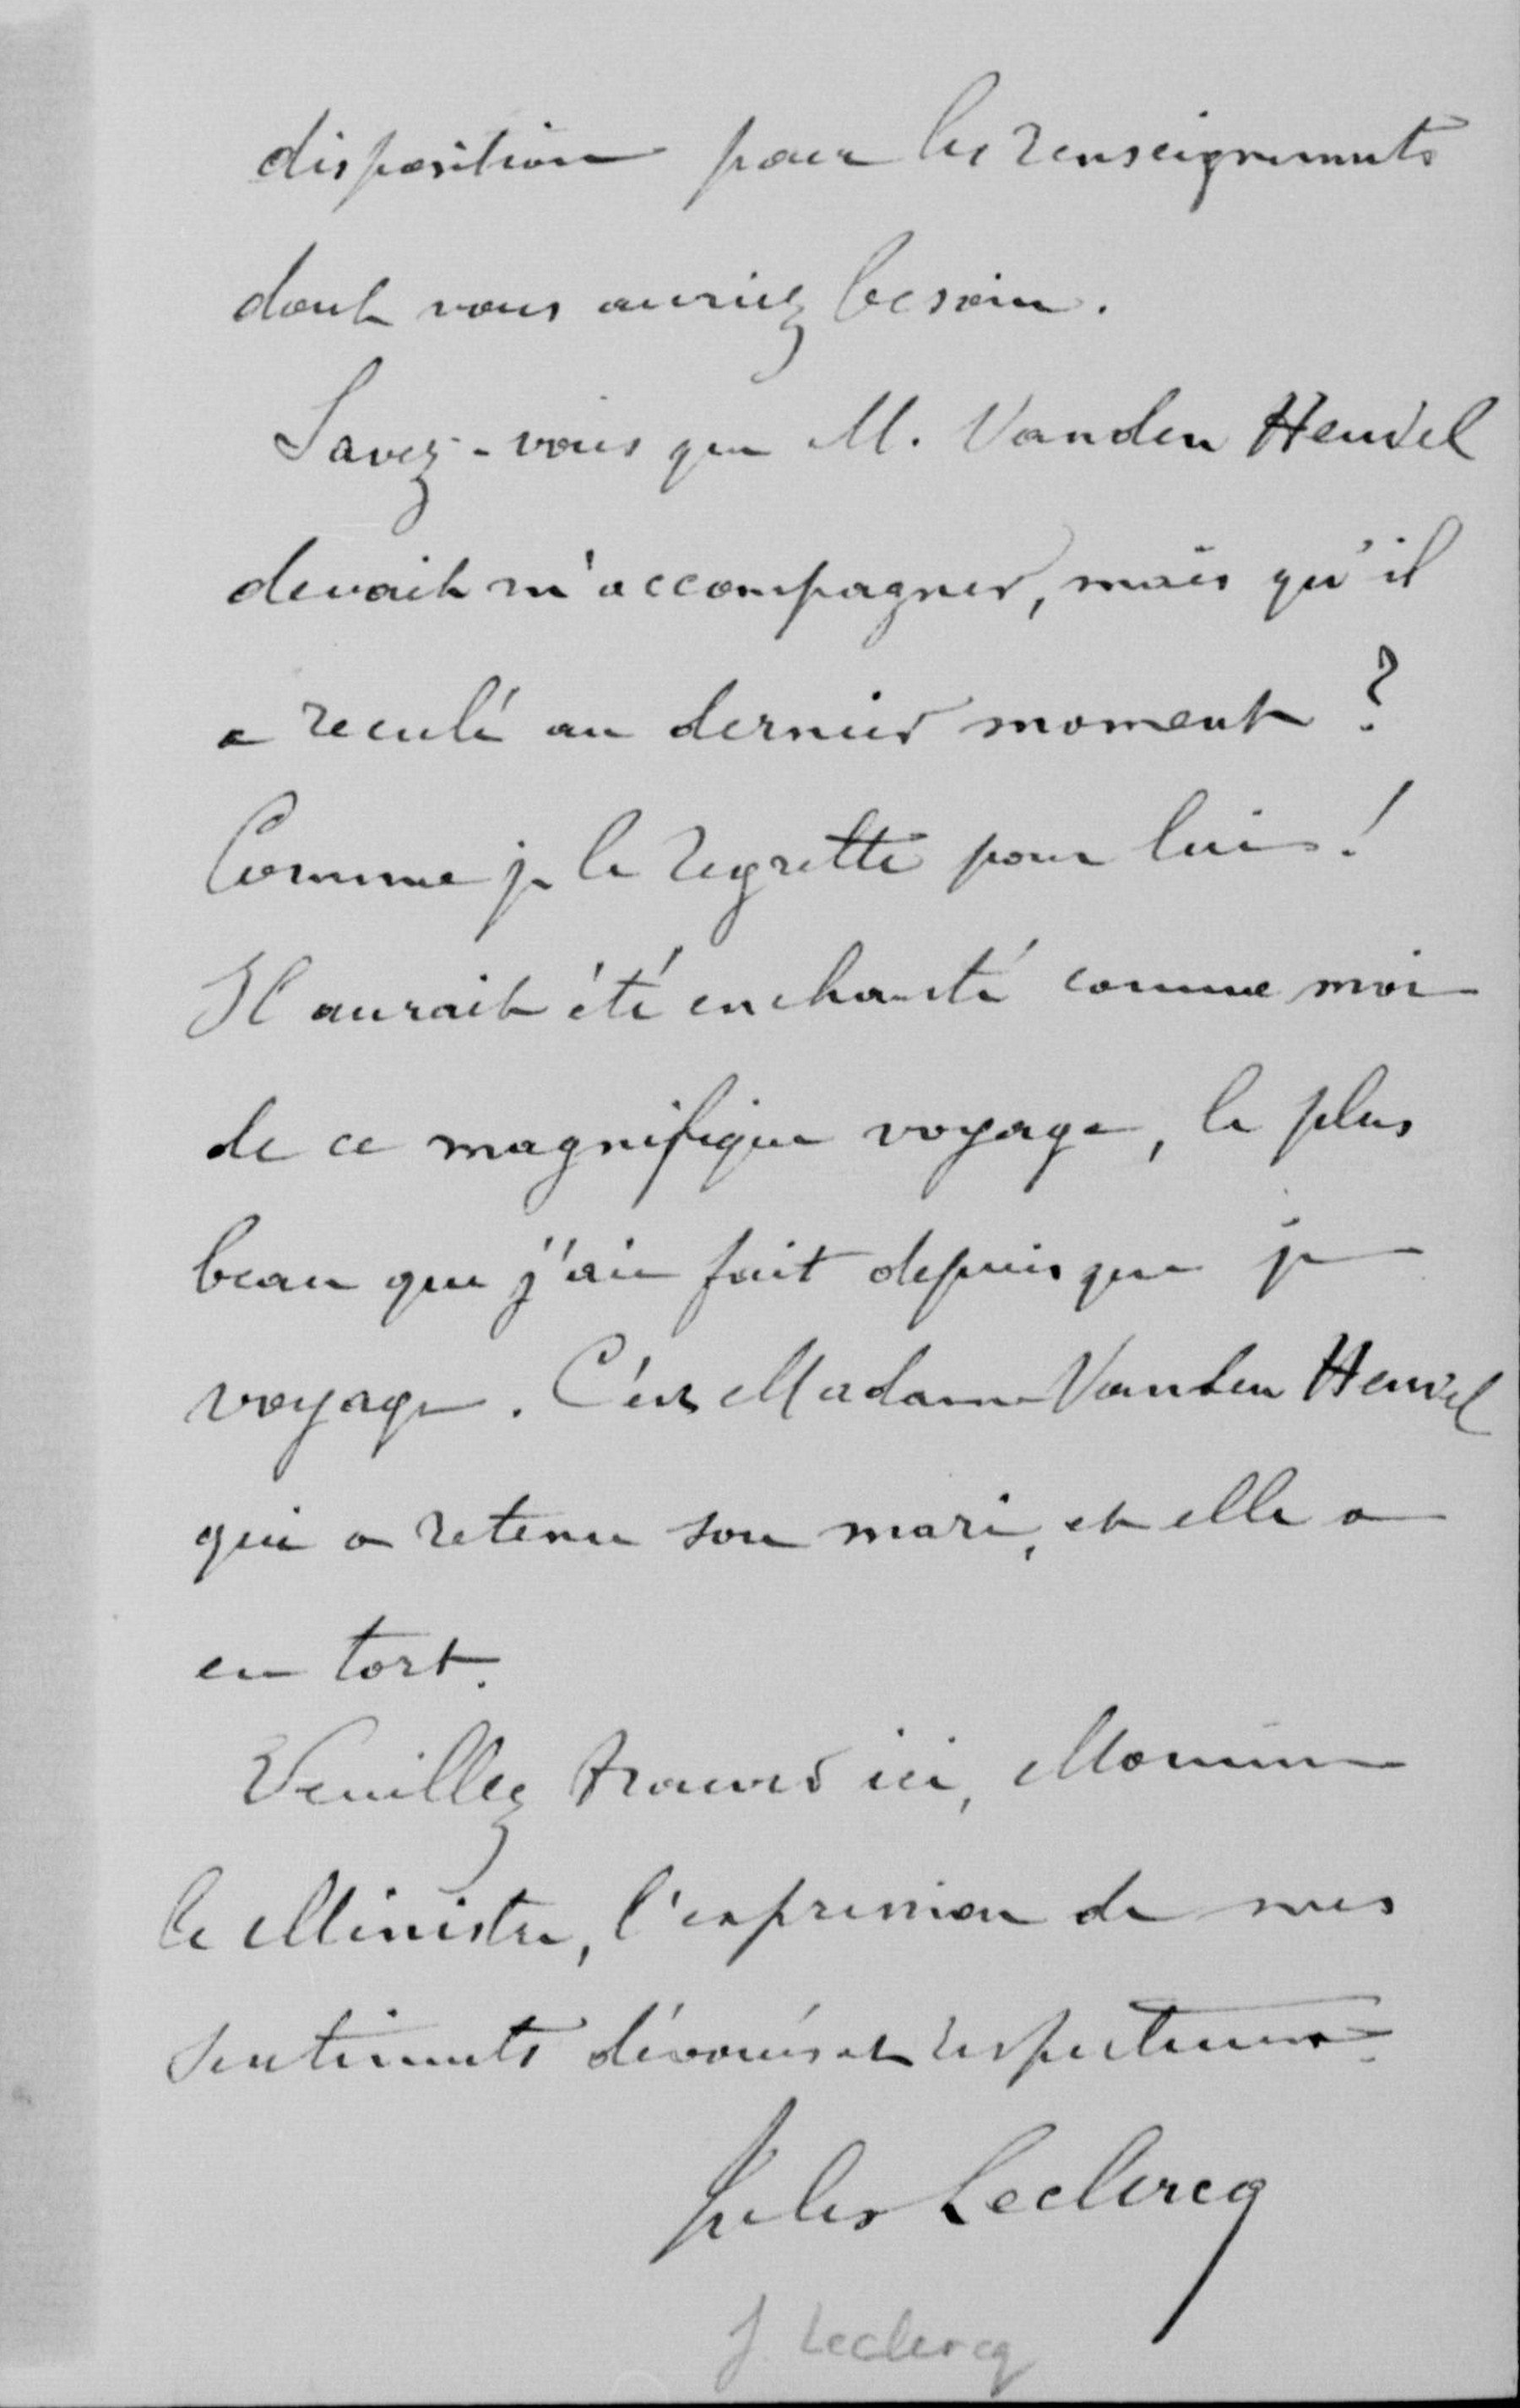 disposition pour les renseignements
dont vous auriez besoin.
Savez-vous que M. Vanden Heuvel
devait m'accompagner, mais qu'il
a reculé au dernier moment ?
Comme je le regrette pour lui !
Il aurait été enchanté comme moi
de ce magnifique voyage, le plus
beau que j'aie fait depuis que je
voyage. C'est Madame Vanden Heuvel
qui a retenu son mari, et elle a
eu tort.
Veuillez trouver ici, Monsieur
le Ministre, l'expression de mes
sentiments dévoués et respectueux.
Jules Leclercq
J. Leclercq